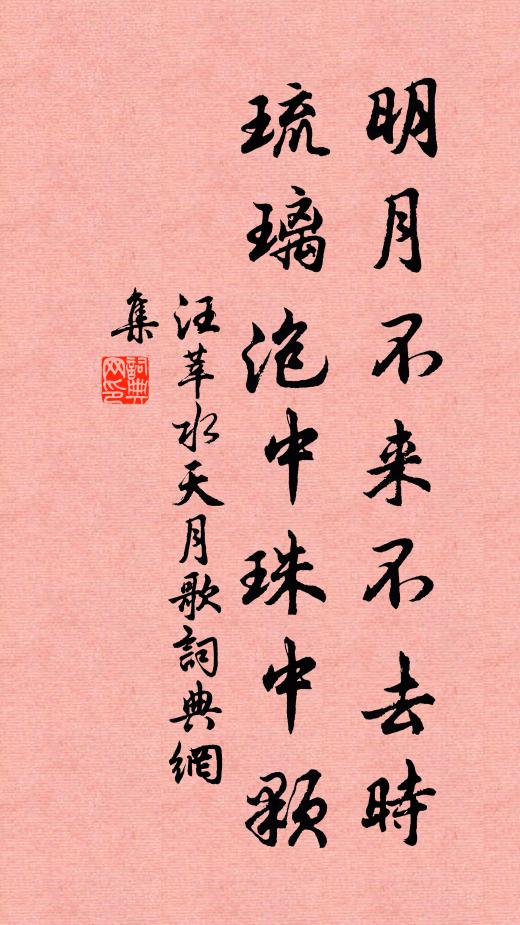 明月不来不去時
琉璃泡中珠中顆
汪莘水天月歌詞典網
集
詞典网印